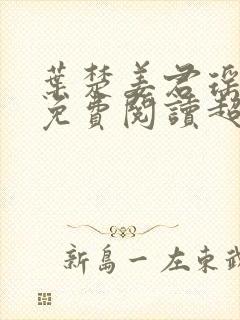 葉楚姜君瑤
免費閱讀超
新島一左東武